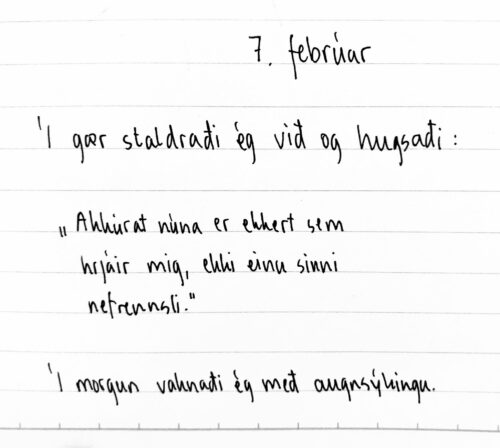 7. febrúar
Í gær staldraði ég við og hugsaði:
„Akkúrat núna er ekkert sem
hrjáir mig, ekki einu sinni
nefrennsli."
Í morgun vaknaði ég með augnsýkingu.